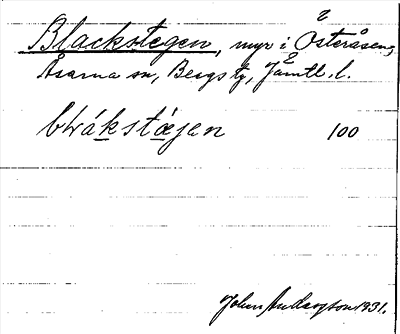 Blackstegen, myr i Österåsen,
Åsarna sn, Bergs tg, Jämtl. l.
blrákstǽjen 100
John Andersson 1931.